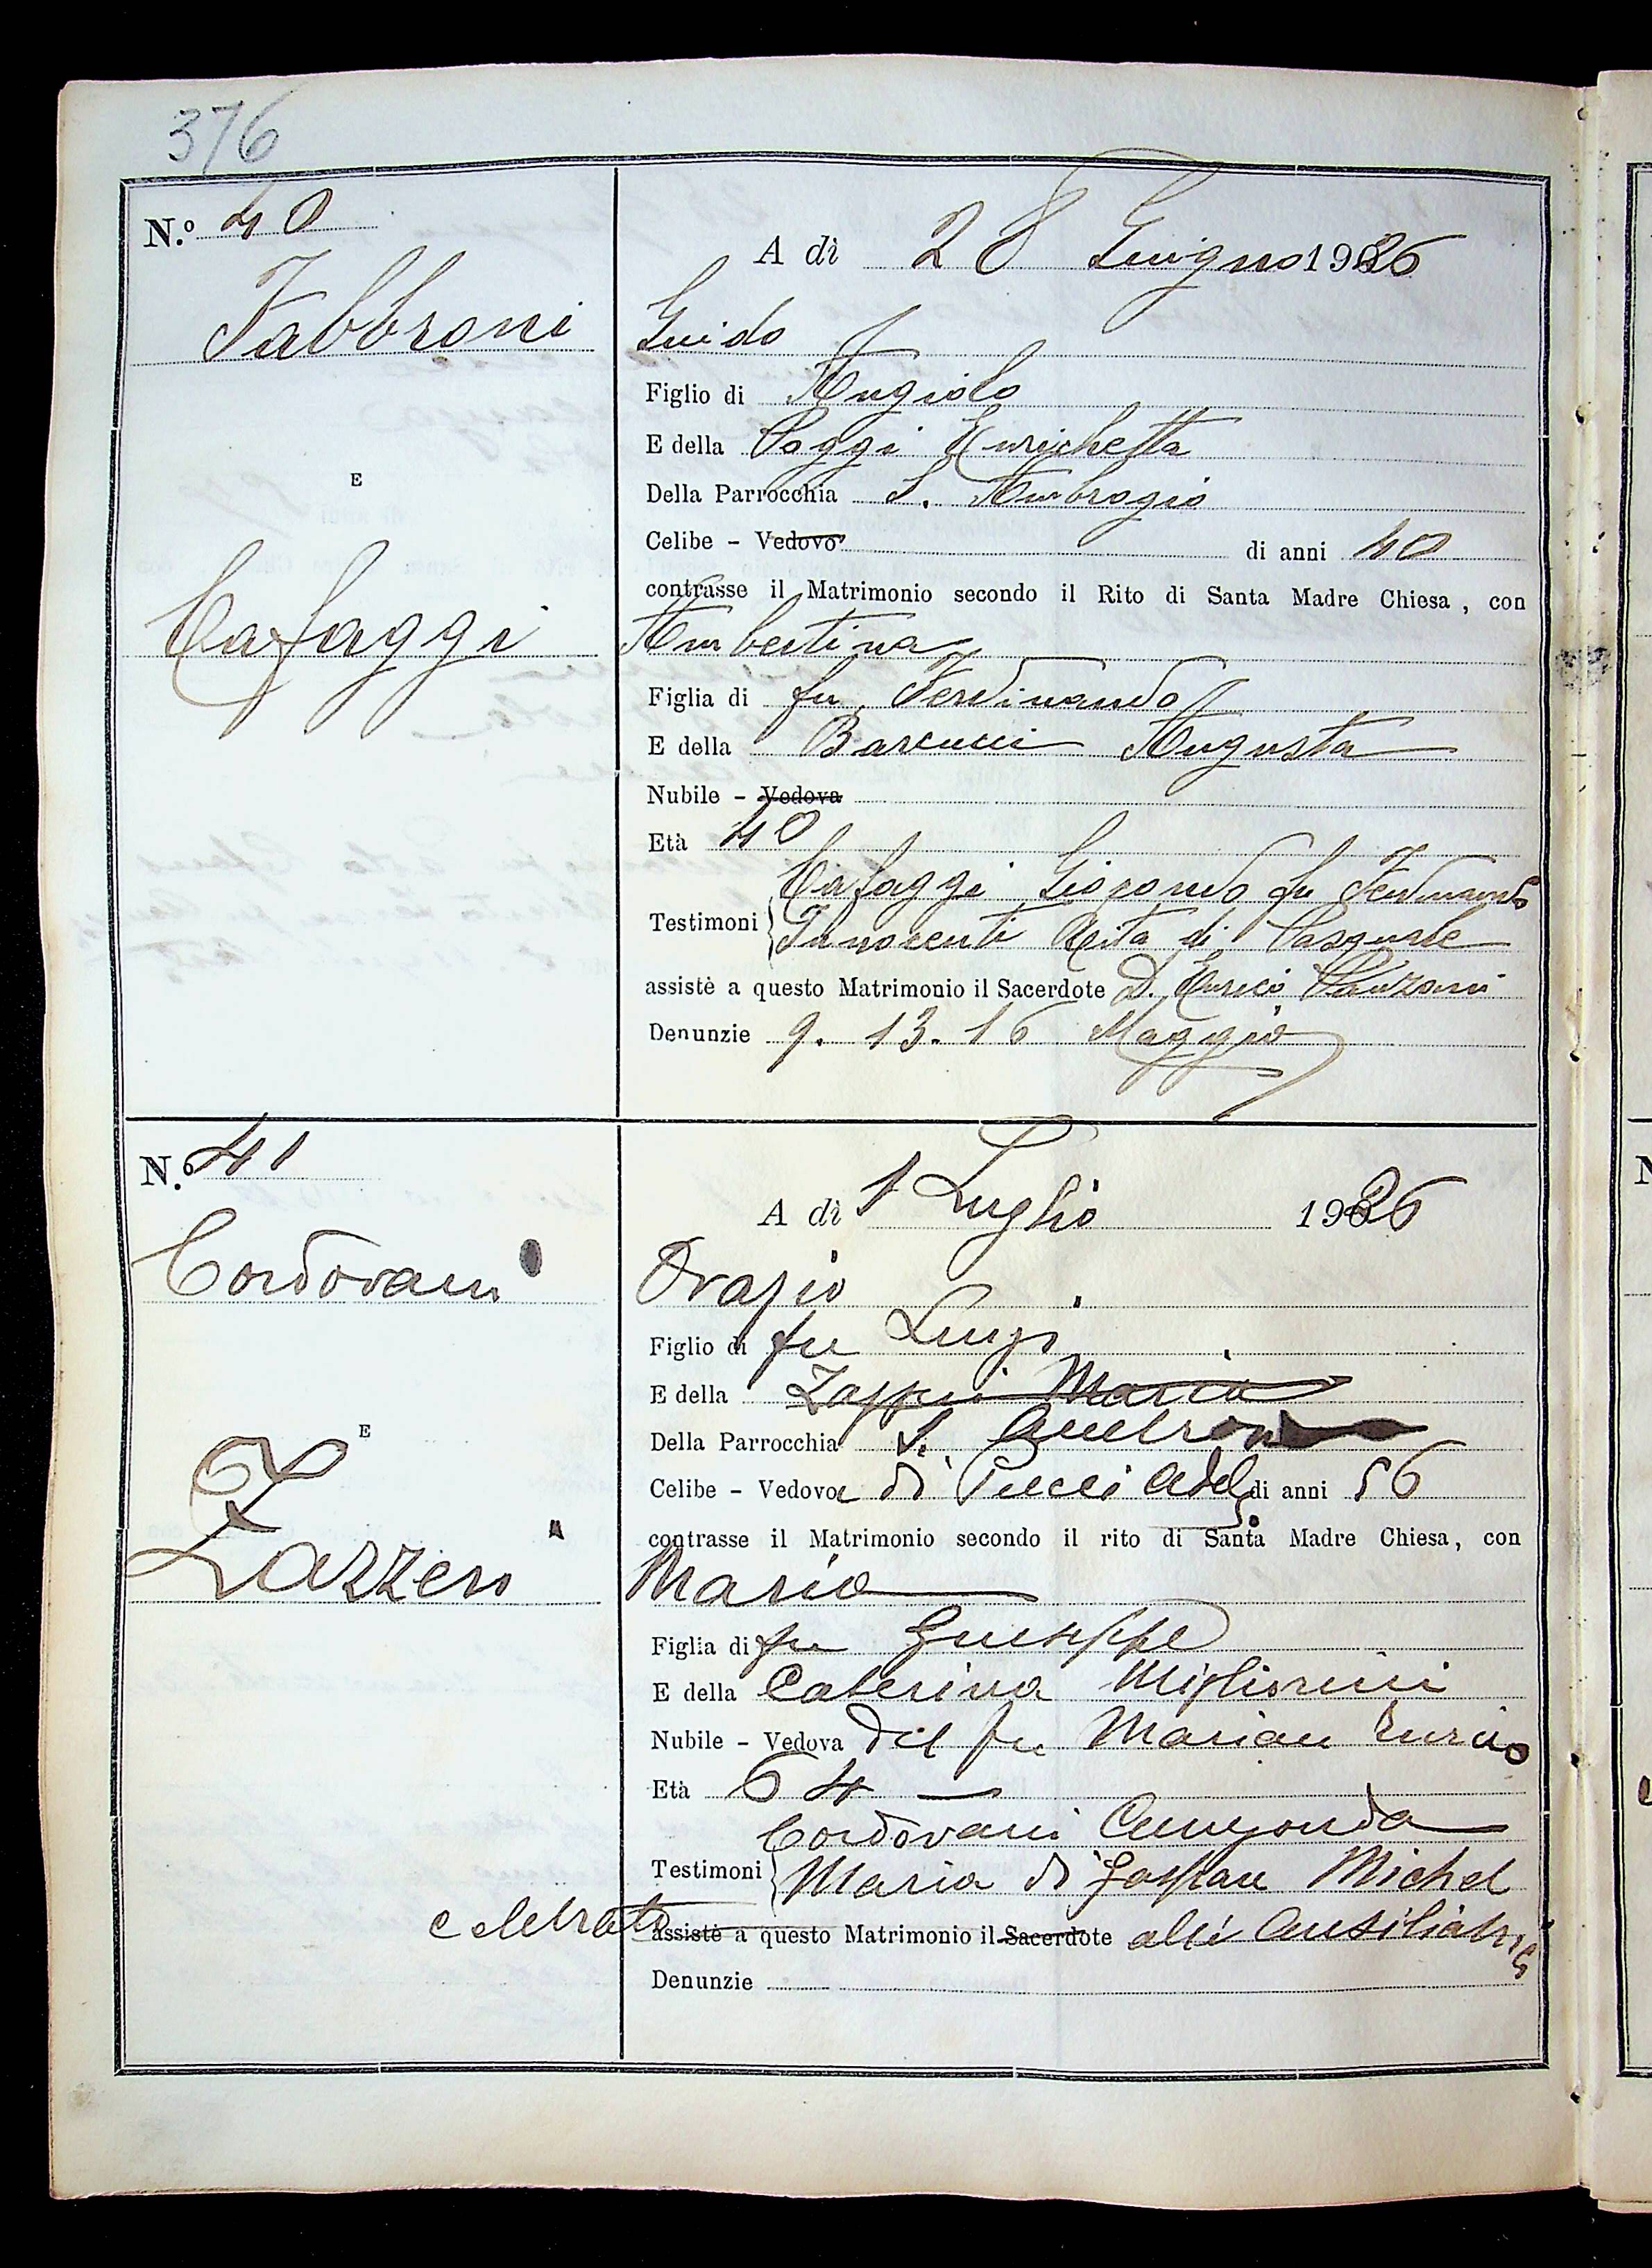 376
N.º 40
A dì 28 Giugno 1926
Fabbroni
Guido
Figlio di Angiolo
E della Poggi Enrichetta
E
Della Parrocchia S. Ambrogio
Celibe - Vedovo di anni 40
contrasse il Matrimonio secondo il Rito di Santa Madre Chiesa, con
Cafaggi
Umbertina
Figlia di fu Ferdinando
E della Barcucci Augusta
Nubile - Vedova
Età 40
Cafaggi Giocondo fu Ferdinando
Testimoni Innocenti Rita di Pasquale
assistè a questo Matrimonio il Sacerdote D. Enrico
Denunzie 9. 13. 16 Maggio
N.º 41
A dì 1 Luglio 1926
Cordovani
Orazio
Figlio di fu Luigi
E della Maria
E
Della Parrocchia S.
Celibe - Vedovo di Pucci Adele di anni 56
contrasse il Matrimonio secondo il rito di Santa Madre Chiesa, con
Lazzeri
Maria
Figlia di fu Giuseppe
E della Caterina Migliorini
Nubile - Vedova del fu Mariani
Età 64
Cordovani
Testimoni Maria di Michel
celebrato assistè a questo Matrimonio il Sacerdote
Denunzie